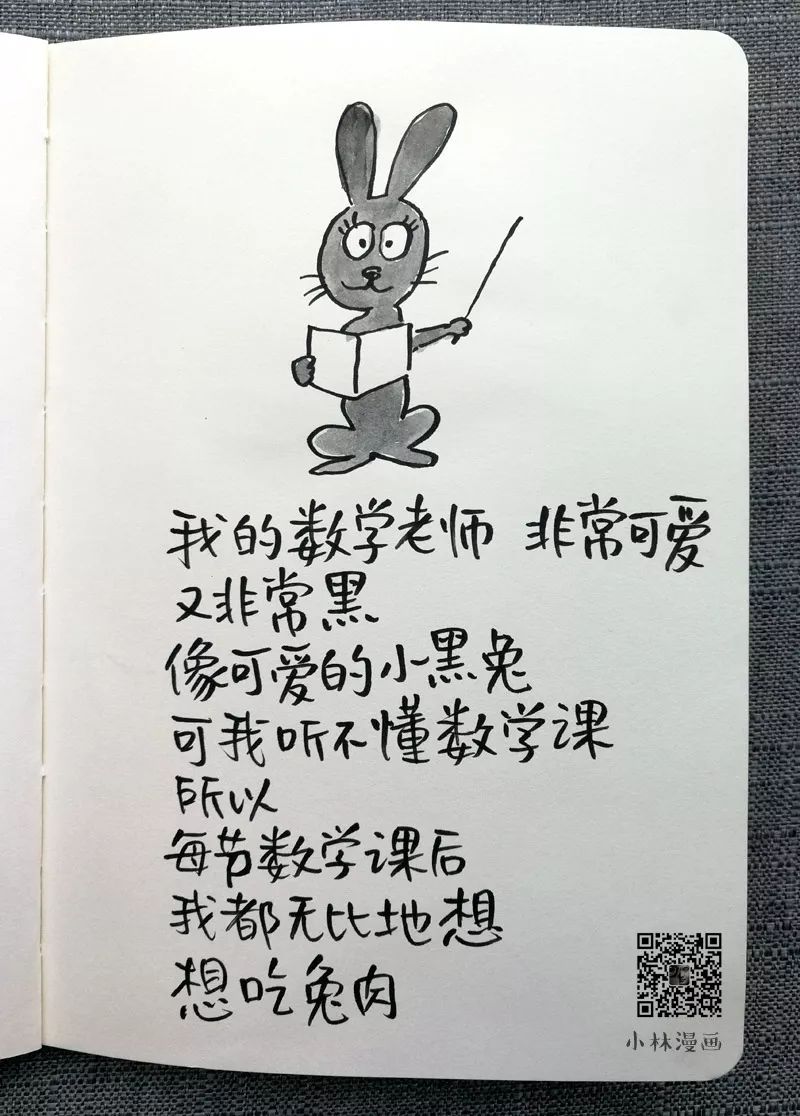 我的数学老师 非常可爱
又非常黑
像可爱的小黑兔
可我听不懂数学课
所以
每节数学课后
我都无比地想
想吃兔肉
小林漫画